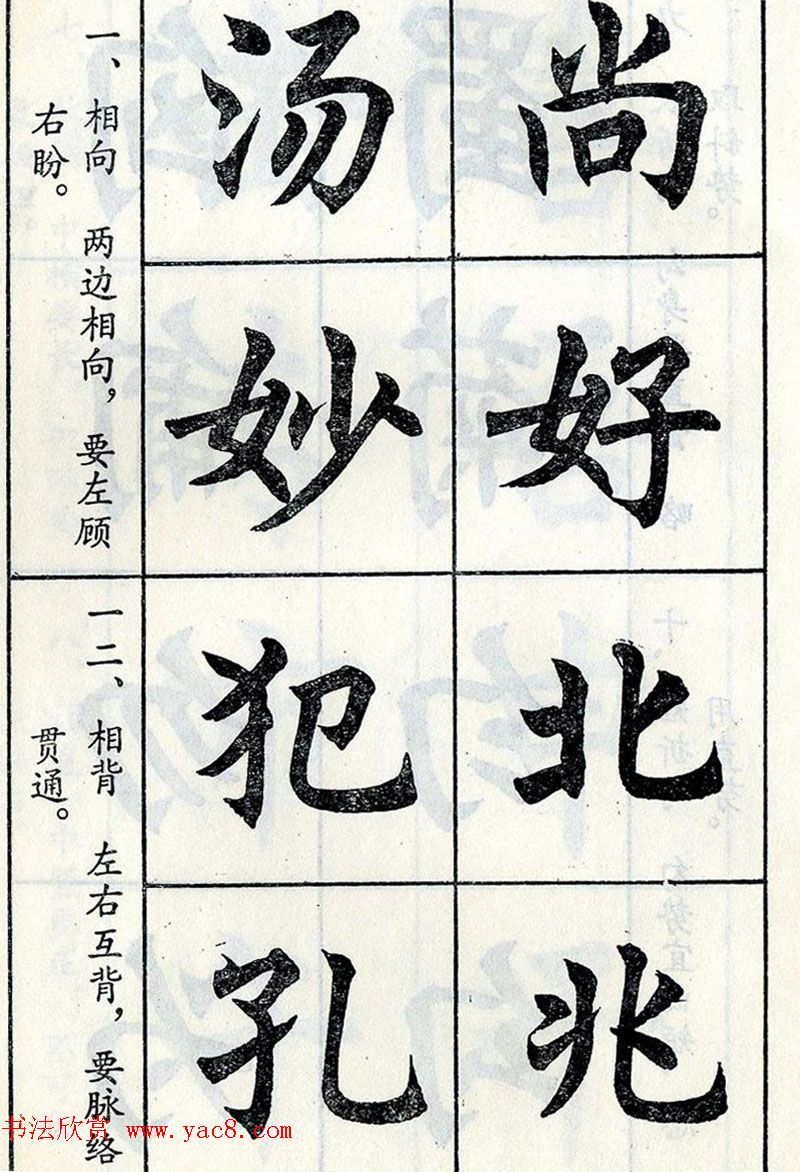 尚
好
北
兆
汤
妙
犯
孔
一、相向 两边相向，要左顾
右盼。
一二、相背 左右互背，要脉络
贯通。
书法欣赏 www.yac8.com